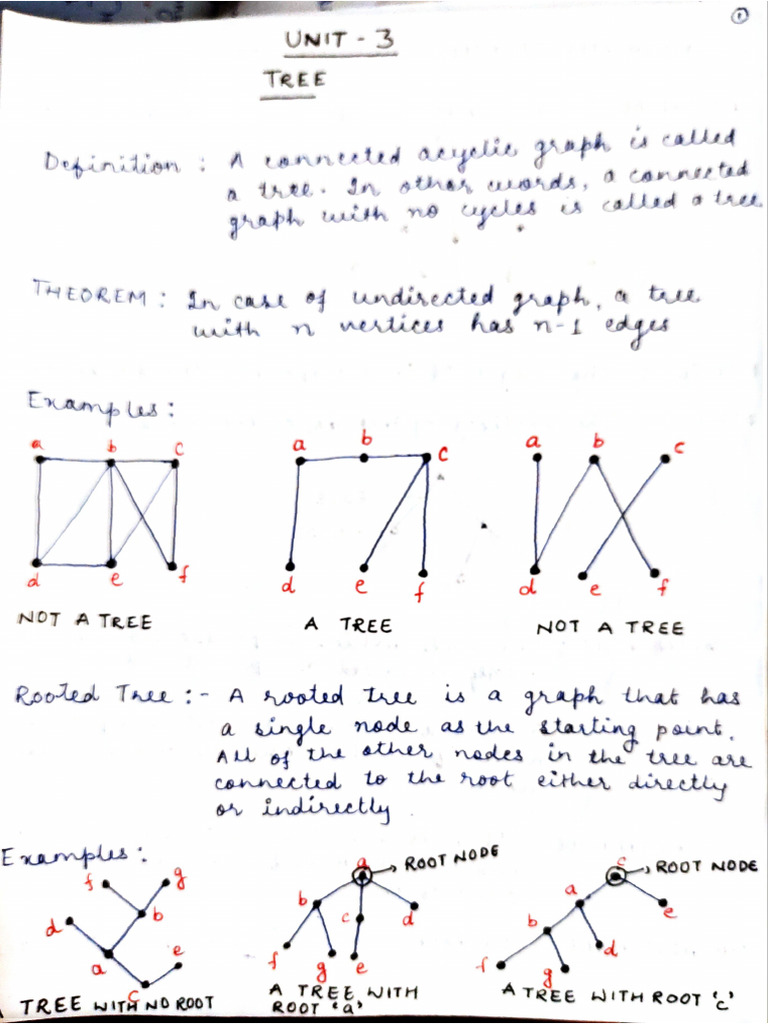 1
UNIT - 3
TREE
Definition : A connected acyclic graph is called
a tree. In other words, a connected
graph with no cycles is called a tree
THEOREM : In case of undirected graph, a tree
with n vertices has n-1 edges
Examples :
a b c
d e f
NOT A TREE
a b c
d e f
A TREE
a b c
d e f
NOT A TREE
Rooted Tree :- A rooted tree is a graph that has
a single node as the starting point.
All of the other nodes in the tree are
connected to the root either directly
or indirectly.
Examples :
f g
d b
a e
c
TREE WITH NO ROOT
a → ROOT NODE
b c d
f g e
A TREE WITH
ROOT 'a'
c → ROOT NODE
a e
b d
f g
A TREE WITH ROOT 'c'